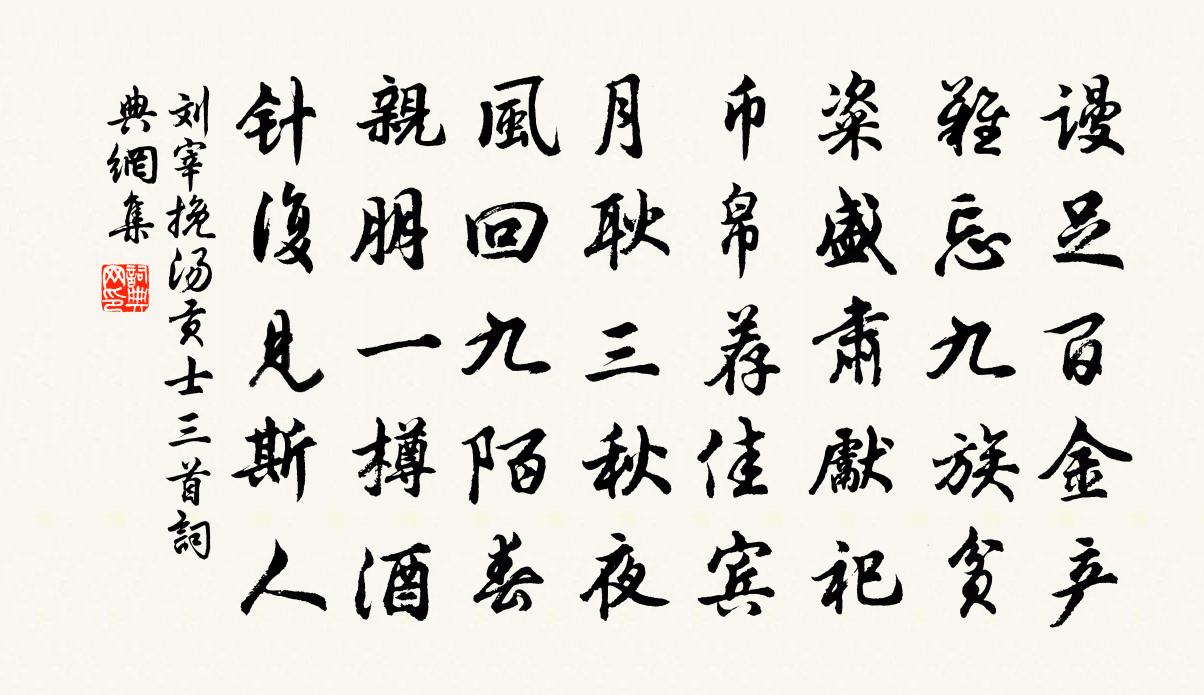 谩足百金产
难忘九族贫
粢盛肃獻祀
币帛荐佳宾
月耿三秋夜
風回九陌春
親朋一樽酒
针復見斯人
刘宰挽汤贡士三首詞
典網集
詞典
网印